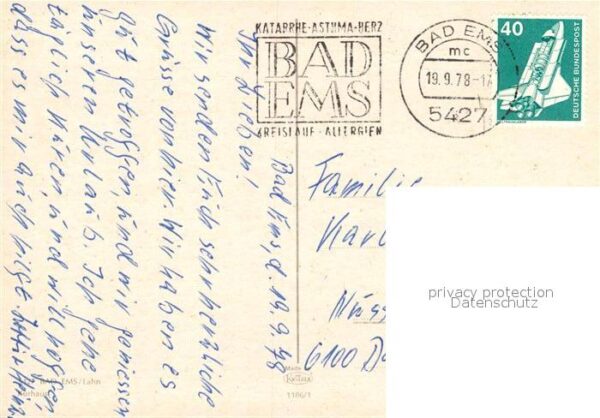 KATARRHE·ASTHMA·HERZ
BAD
EMS
KREISLAUF · ALLERGIEN
BAD EMS
mc
19.9.78-17
5427
40
DEUTSCHE BUNDESPOST
Bad Ems, d. 19.9.78
Ihr Lieben!
Wir senden Euch sehr herzliche
Grüsse von hier. Wir haben es
gut getroffen und wir geniessen
unseren Urlaub. Ich gehe
täglich kuren, und will hoffen,
dass es mir auch hilft.
Familie
6100
privacy protection
Datenschutz
BAD EMS/Lahn
Kurhaus
1186/1